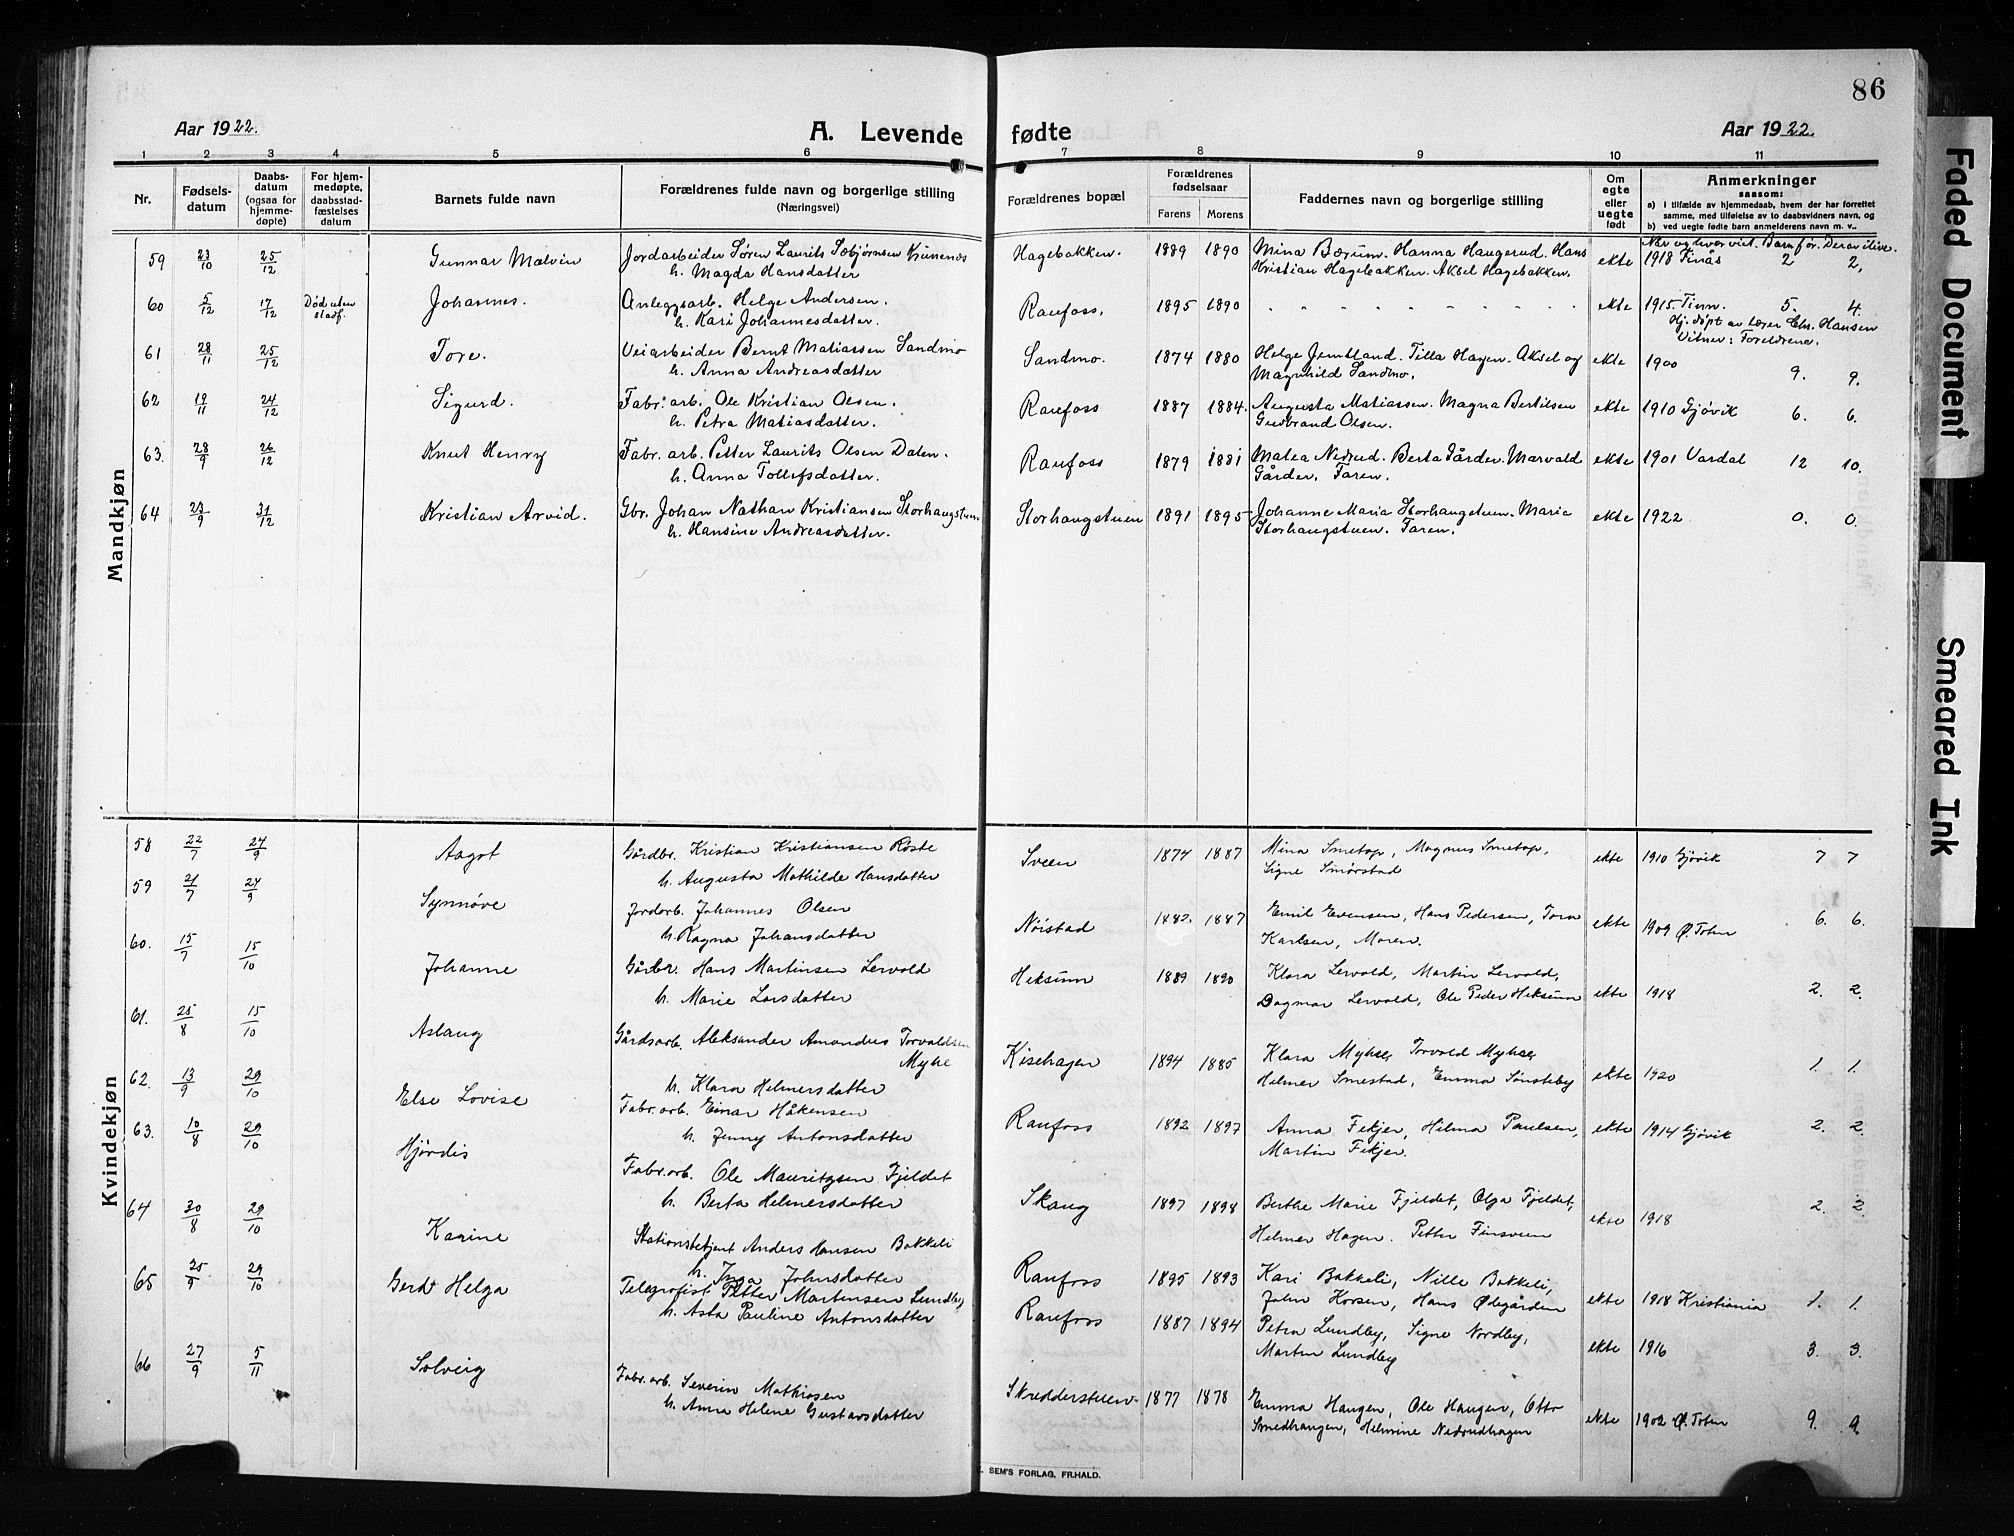 86
Aar 1922.
A. Levende fødte
Aar 1922.
1 2 3 4 5 6 7 8 9 10 11
Nr.
Fødsels-
datum
Daabs-
datum
(ogsaa for
hjemme-
døpte)
For hjem-
medøpte,
daabsstad-
fæstelses
datum
Barnets fulde navn
Forældrenes fulde navn og borgerlige stilling
(Næringsvei)
Forældrenes bopæl
Forældrenes
fødselsaar
Farens Morens
Faddernes navn og borgerlige stilling
Om
egte
eller
uegte
født
Anmerkninger
saasom:
a) i tilfælde av hjemmedaab, hvem der har forrettet
samme, med tilføielse av to daabsvidners navn, og
b) ved uegte fødte barn anmelderens navn m. v.
Mandkjøn
Når og hvor viet. Barn før. Derav i live.
59 23/10 25/12 Gunnar Malvin Jordarbeider Søren Laurits Sebjørnsen Kinnenes Hagebakken. 1889 1890 Mina Bærum. Hanna Haugerud. Hans ekte 1918 Finås 2 2.
h. Magda Hansdatter Kristian Hagebakken. Aksel Hagebakken.
60 5/12 17/12 Død uten Johannes. Anleggsarb. Helge Andersen. Raufoss. 1895 1890 " " " " " " " " ekte 1915 Tinn. 5. 4.
stadf. h. Kari Johannesdatter. Hj. døpt av lærer Chr. Hansen
Vitner: Foreldrene.
61 28/11 25/12 Tore. Veiarbeider Bernt Matiassen Sandmo Sandmo. 1874 1880 Helge Jemtland. Tilla Hagen. Aksel og ekte 1900 9. 9.
h. Anna Andreasdatter Magnhild Sandmo.
62 19/11 24/12 Sigurd. Fabr. arb. Ole Kristian Olsen. Raufoss 1887 1884. Augusta Matiassen. Magna Bertilsen ekte 1910 Gjøvik 6. 6.
h. Petra Matiasdatter. Gudbrand Olsen.
63. 28/9 26/12 Knut Henry Fabr. arb. Petter Laurits Olsen Dalen. Raufoss 1879 1881 Matea Nedrud. Berta Gårder. Marvald ekte 1901 Vardal 12 10.
h. Anna Tollefsdatter. Gårder. Faren.
64 23/9 31/12 Kristian Arvid. Gbr. Johan Nathan Kristiansen Storhaugstuen Storhaugstuen 1891 1895 Johanne Maria Storhaugstuen. Marie ekte 1922 0. 0.
h. Hansine Andreasdatter. Storhaugstuen. Faren.
Kvindekjøn
58 22/7 24/9 Aagot Gårdbr. Kristian Kristiansen Røste Sveen 1874 1887 Mina Smetop, Magnus Smetop, ekte 1910 Gjøvik 7 7
h. Augusta Mathilde Hansdatter Signe Smørstad
59 21/7 24/9 Synnøve Jordarb. Johannes Olsen Nøistad 1882. 1887 Emil Evensen, Hans Pedersen, Tora ekte 1909 Ø. Toten 6. 6.
h. Ragna Johansdatter Karlsen, Moren.
60. 15/7 15/10 Johanne Gårbr. Hans Martinsen Lervold Heksum 1889 1890 Klara Lervold, Martin Lervold, ekte 1918 2. 2.
h. Marie Larsdatter Dagmar Lervold, Ole Peder Heksum
61. 25/8 15/10 Aslaug Gårdsarb. Aleksander Amandus Torvaldsen Kisehagen 1894 1885 Klara Myhre, Torvald Myhre, ekte 1920 1. 1.
Myhre
h. Klara Helmersdatter Helmer Smestad, Emma Sønsteby
62. 13/9 29/10 Else Lovise Fabr. arb. Einar Håkensen Raufoss 1892 1897 Anna Fikjer, Hilma Paulsen, ekte 1914 Gjøvik 2. 2.
h. Jenny Antonsdatter Martin Fikjer.
63. 10/8 29/10 Hjørdis Fabr. arb. Ole Mauritzsen Fjeldet Skaug 1897 1898 Berthe Marie Fjeldet, Olga Fjeldet, ekte 1918 2. 2.
h. Berta Helmersdatter Helmer Hagen. Petter Finsveen
64 30/8 29/10 Karine Stationsbetjent Anders Hansen Bakkeli Raufoss 1895 1893 Kari Bakkeli, Nille Bakkeli, ekte 1918 Kristiania 1. 1.
h. Inga Johnsdatter John Korsen, Hans Ødegården
65 25/9 29/10 Gerd Helga Telegrafist Petter Martinsen Lundby Raufoss 1887 1894 Petra Lundby, Signe Nordby, ekte 1916 3. 3.
h. Asta Pauline Antonsdatter Martin Lundby
66 27/9 5/11 Solveig Fabr. arb. Severin Mathiasen Skredderstuen 1877 1878 Emma Haugen, Ole Haugen, Otto ekte 1902 Ø. Toten 9. 9
h. Anna Helene Gustavsdatter Smedhaugen, Helmine Nedrudhagen
SEM'S FORLAG, FR.HALD.
Faded Document
Smeared Ink